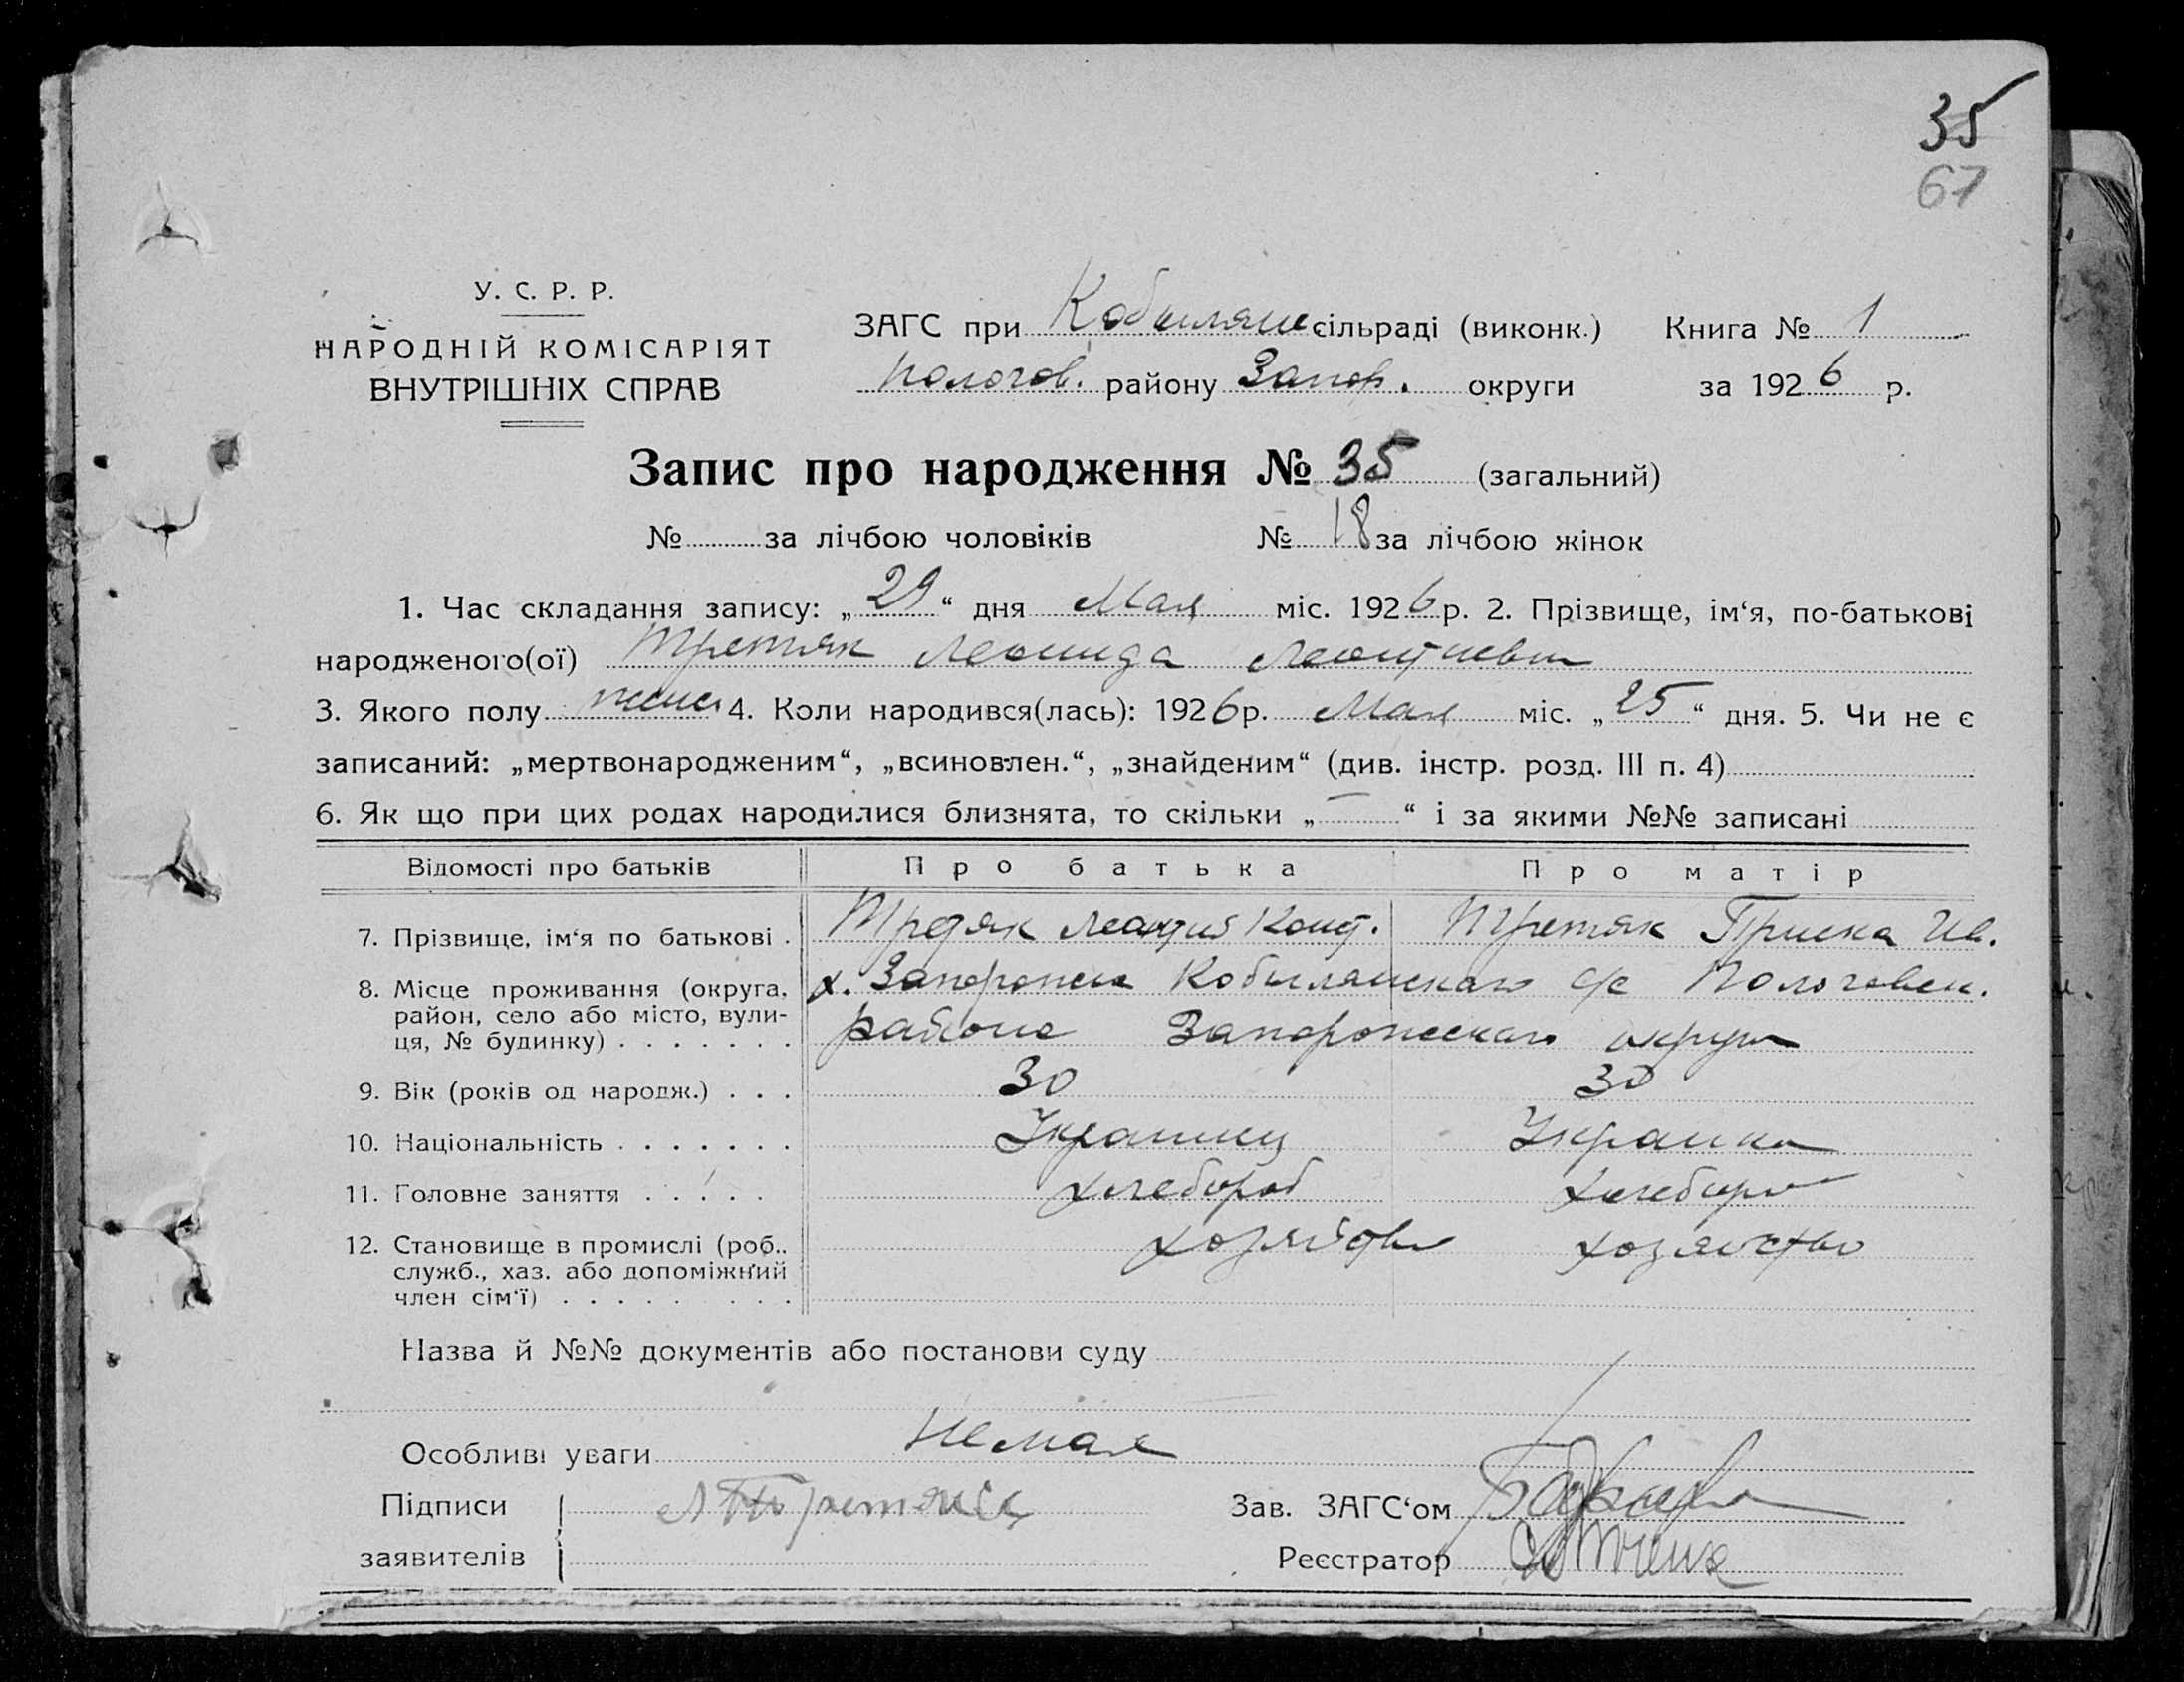 35
67
У. С. Р. Р.
НАРОДНІЙ КОМІСАРІЯТ
ВНУТРІШНІХ СПРАВ
ЗАГС при Кобылянс сільраді (виконк.) Книга № 1
Пологов. району Запор. округи за 1926 р.
Запис про народження № 35 (загальний)
№ за лічбою чоловіків № 18 за лічбою жінок
1. Час складання запису: „29“ дня Мая міс. 1926 р. 2. Прізвище, ім‘я, по-батькові
народженого(ої) Третяк Леонида
3. Якого полу женс. 4. Коли народився(лась): 1926 р. Мая міс. „25“ дня. 5. Чи не є
записаний: „мертвонародженим“, „всиновлен.“, „знайденим“ (див. інстр. розд. III п. 4)
6. Як що при цих родах народилися близнята, то скільки „—“ і за якими №№ записані
Відомості про батьків Про батька Про матір
7. Прізвище, ім‘я по батькові . Третяк Леонтий Конст. Третяк Приска Ив.
8. Місце проживання (округа, х. Запорожец Кобылянскаго с/с Пологовск.
район, село або місто, вули- района Запорожскаго округа
ця, № будинку) . . . . . . .
9. Вік (років од народж.) . . . 30 30
10. Національність . . . . . . . Украинец Украинка
11. Головне заняття . . . . . хлебороб хлебороб
12. Становище в промислі (роб., хозяйство хозяйство
служб., хаз. або допоміжний
член сім‘ї) . . . . . . . .
Назва й №№ документів або постанови суду
Особливі уваги Немае
Підписи Л Третяк Зав. ЗАГС‘ом
заявителів Реєстратор